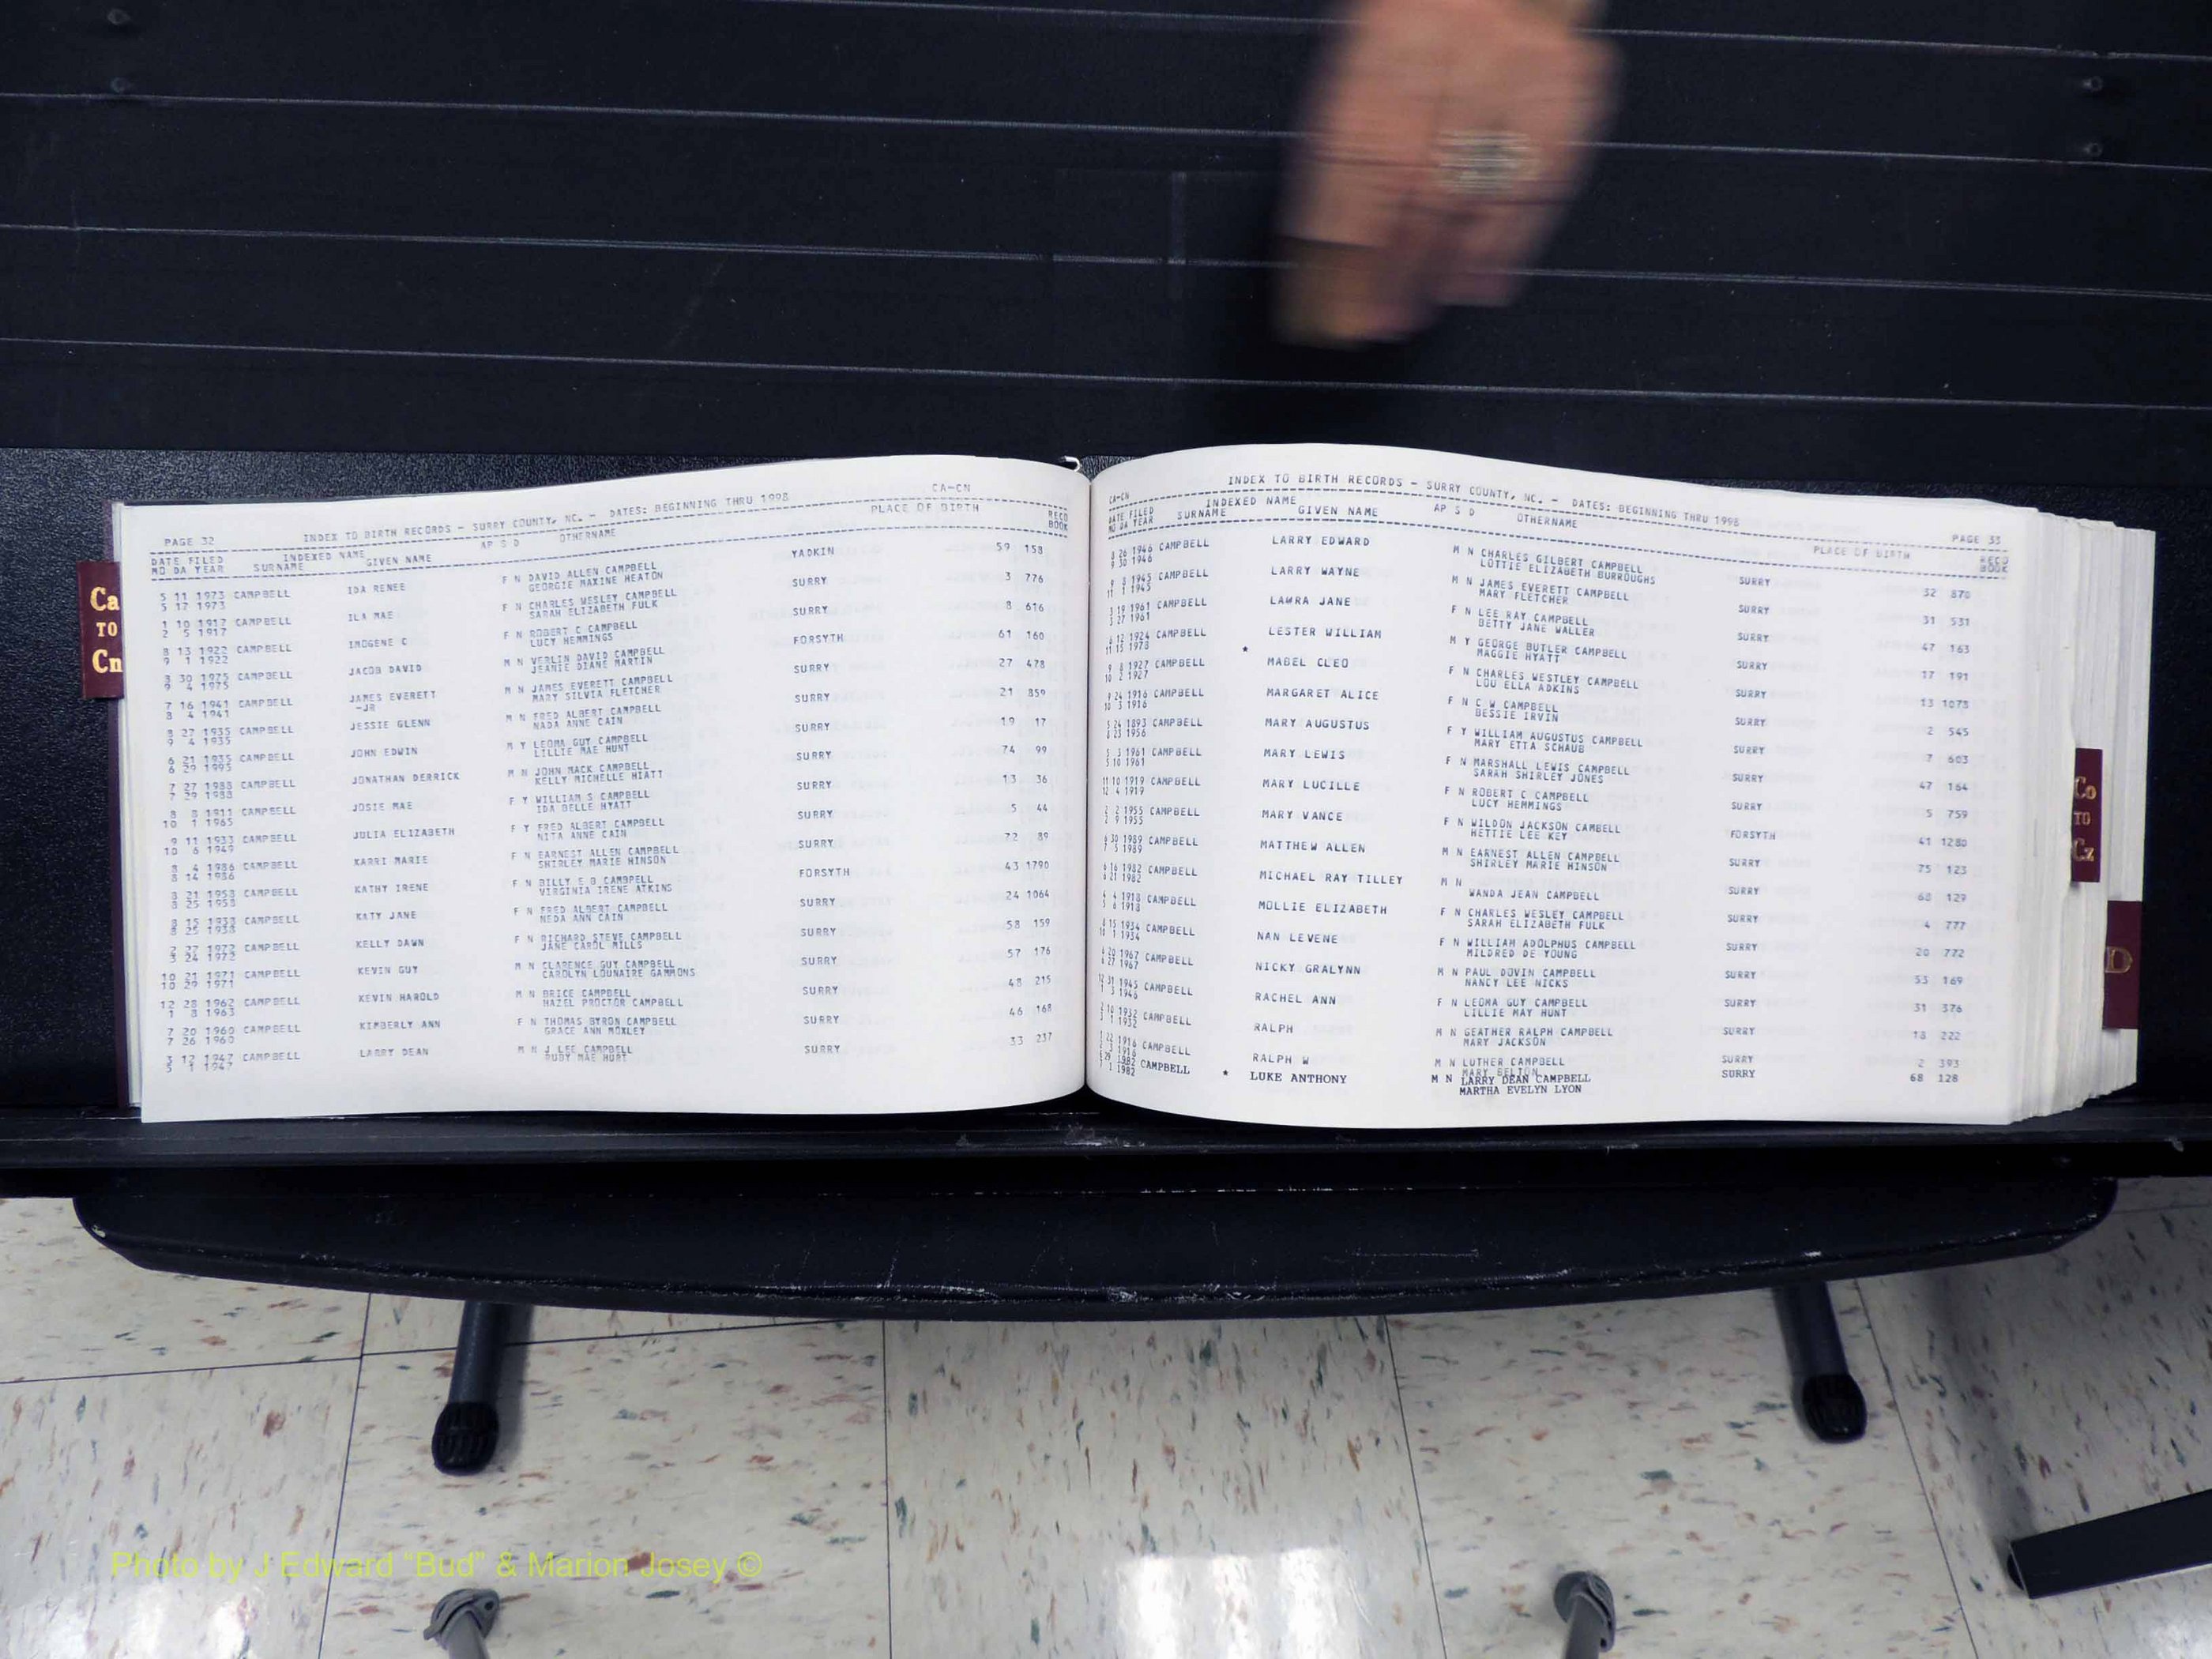 Ca
TO
Cn
PAGE 32 INDEX TO BIRTH RECORDS - SURRY COUNTY, NC. - DATES: BEGINNING THRU 1998 CA-CN
DATE FILED INDEXED NAME AP S D OTHERNAME PLACE OF BIRTH RECD
MO DA YEAR SURNAME GIVEN NAME BOOK
5 11 1973 CAMPBELL IDA RENEE F N DAVID ALLEN CAMPBELL YADKIN 59 158
5 17 1973 GEORGIE MAXINE HEATON
1 10 1917 CAMPBELL ILA MAE F N CHARLES WESLEY CAMPBELL SURRY 3 776
2 5 1917 SARAH ELIZABETH FULK
8 13 1922 CAMPBELL IMOGENE C F N ROBERT C CAMPBELL SURRY 8 616
9 1 1922 LUCY HEMMINGS
8 30 1975 CAMPBELL JACOB DAVID M N VERLIN DAVID CAMPBELL FORSYTH 61 160
9 4 1975 JEANIE DIANE MARTIN
7 16 1941 CAMPBELL JAMES EVERETT M N JAMES EVERETT CAMPBELL SURRY 27 478
8 4 1941 -JR MARY SILVIA FLETCHER
8 27 1935 CAMPBELL JESSIE GLENN M N FRED ALBERT CAMPBELL SURRY 21 859
9 4 1935 NADA ANNE CAIN
6 21 1935 CAMPBELL JOHN EDWIN M Y LEOMA GUY CAMPBELL SURRY 19 17
6 29 1995 LILLIE MAE HUNT
7 27 1988 CAMPBELL JONATHAN DERRICK M N JOHN MACK CAMPBELL SURRY 74 99
7 29 1988 KELLY MICHELLE HIATT
8 8 1911 CAMPBELL JOSIE MAE F Y WILLIAM S CAMPBELL SURRY 13 36
10 1 1965 IDA BELLE HYATT
9 11 1933 CAMPBELL JULIA ELIZABETH F Y FRED ALBERT CAMPBELL SURRY 5 44
10 6 1949 NITA ANNE CAIN
8 4 1986 CAMPBELL KARRI MARIE F N EARNEST ALLEN CAMPBELL SURRY 72 89
8 14 1986 SHIRLEY MARIE HINSON
8 21 1958 CAMPBELL KATHY IRENE F N BILLY E B CAMPBELL FORSYTH 43 1790
8 25 1958 VIRGINIA IRENE ATKINS
8 15 1938 CAMPBELL KATY JANE F N FRED ALBERT CAMPBELL SURRY 24 1064
8 25 1938 NEDA ANN CAIN
2 27 1972 CAMPBELL KELLY DAWN F N RICHARD STEVE CAMPBELL SURRY 58 159
3 24 1972 JANE CAROL MILLS
10 21 1971 CAMPBELL KEVIN GUY M N CLARENCE GUY CAMPBELL SURRY 57 176
10 29 1971 CAROLYN LOUNAIRE GAMMONS
12 28 1962 CAMPBELL KEVIN HAROLD M N BRICE CAMPBELL SURRY 48 215
1 8 1963 HAZEL PROCTOR CAMPBELL
7 20 1960 CAMPBELL KIMBERLY ANN F N THOMAS BYRON CAMPBELL SURRY 46 168
7 26 1960 GRACE ANN MOXLEY
3 12 1947 CAMPBELL LARRY DEAN M N J LEE CAMPBELL SURRY 33 237
5 1 1947 RUBY MAE HURT
CA-CN INDEX TO BIRTH RECORDS - SURRY COUNTY, NC. - DATES: BEGINNING THRU 1998 PAGE 33
DATE FILED INDEXED NAME AP S D OTHERNAME PLACE OF BIRTH RECD
MO DA YEAR SURNAME GIVEN NAME BOOK
8 26 1946 CAMPBELL LARRY EDWARD M N CHARLES GILBERT CAMPBELL SURRY 32 870
9 30 1946 LOTTIE ELIZABETH BURROUGHS
9 8 1945 CAMPBELL LARRY WAYNE M N JAMES EVERETT CAMPBELL SURRY 31 531
11 1 1945 MARY FLETCHER
3 19 1961 CAMPBELL LAWRA JANE F N LEE RAY CAMPBELL SURRY 47 163
3 27 1961 BETTY JANE WALLER
6 12 1924 CAMPBELL LESTER WILLIAM M Y GEORGE BUTLER CAMPBELL SURRY 17 191
11 15 1978 * MAGGIE HYATT
9 8 1927 CAMPBELL MABEL CLEO F N CHARLES WESTLEY CAMPBELL SURRY 13 1078
10 2 1927 LOU ELLA ADKINS
9 24 1916 CAMPBELL MARGARET ALICE F N C W CAMPBELL SURRY 2 545
10 3 1916 BESSIE IRVIN
5 24 1893 CAMPBELL MARY AUGUSTUS F Y WILLIAM AUGUSTUS CAMPBELL SURRY 7 603
8 23 1956 MARY ETTA SCHAUB
5 3 1961 CAMPBELL MARY LEWIS F N MARSHALL LEWIS CAMPBELL SURRY 47 164
5 10 1961 SARAH SHIRLEY JONES
11 10 1919 CAMPBELL MARY LUCILLE F N ROBERT C CAMPBELL SURRY 5 759
12 4 1919 LUCY HEMMINGS
2 2 1955 CAMPBELL MARY VANCE F N WILDON JACKSON CAMBELL FORSYTH 41 1280
2 9 1955 HETTIE LEE KEY
6 30 1989 CAMPBELL MATTHEW ALLEN M N EARNEST ALLEN CAMPBELL SURRY 75 123
7 5 1989 SHIRLEY MARIE HINSON
6 16 1982 CAMPBELL MICHAEL RAY TILLEY M N SURRY 68 129
6 21 1982 WANDA JEAN CAMPBELL
4 4 1918 CAMPBELL MOLLIE ELIZABETH F N CHARLES WESLEY CAMPBELL SURRY 4 777
5 6 1918 SARAH ELIZABETH FULK
8 15 1934 CAMPBELL NAN LEVENE F N WILLIAM ADOLPHUS CAMPBELL SURRY 20 772
10 1 1934 MILDRED DE YOUNG
6 20 1967 CAMPBELL NICKY GRALYNN M N PAUL DOVIN CAMPBELL SURRY 53 169
6 27 1967 NANCY LEE NICKS
12 31 1945 CAMPBELL RACHEL ANN F N LEOMA GUY CAMPBELL SURRY 31 376
1 3 1946 LILLIE MAY HUNT
2 10 1932 CAMPBELL RALPH M N GEATHER RALPH CAMPBELL SURRY 18 222
3 1 1932 MARY JACKSON
1 22 1916 CAMPBELL RALPH W M N LUTHER CAMPBELL SURRY 2 393
2 3 1916 MARY BELTON
6 29 1982 CAMPBELL * LUKE ANTHONY M N LARRY DEAN CAMPBELL SURRY 68 128
7 1 1982 MARTHA EVELYN LYON
Co
TO
Cz
D
Photo by J Edward "Bud" & Marion Josey ©